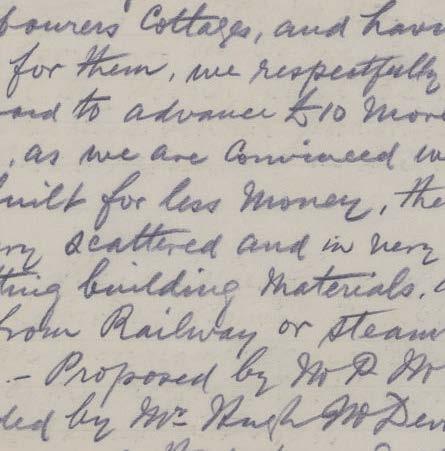 bourers' Cottages, and havin
for them, we respectfully
oard to advance £10 More
, as we are Convinced w
uilt for less Money, the
ry scattered and in very
tting building Materials.
from Railway or Steam
. - Proposed by
ded by Mr. Hugh McDev